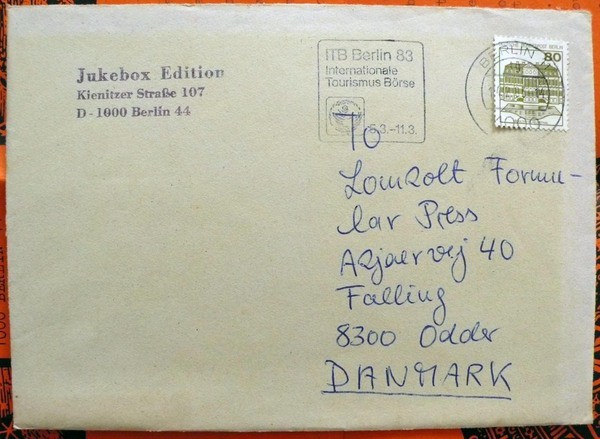 Jukebox Edition
Kienitzer Straße 107
D-1000 Berlin 44
ITB Berlin 83
Internationale
Tourismus Börse
5.3.–11.3.
BERLIN
1000
80
To
Lomholt Formu-
lar Press
Akjaervej 40
Falling
8300 Odder
DANMARK